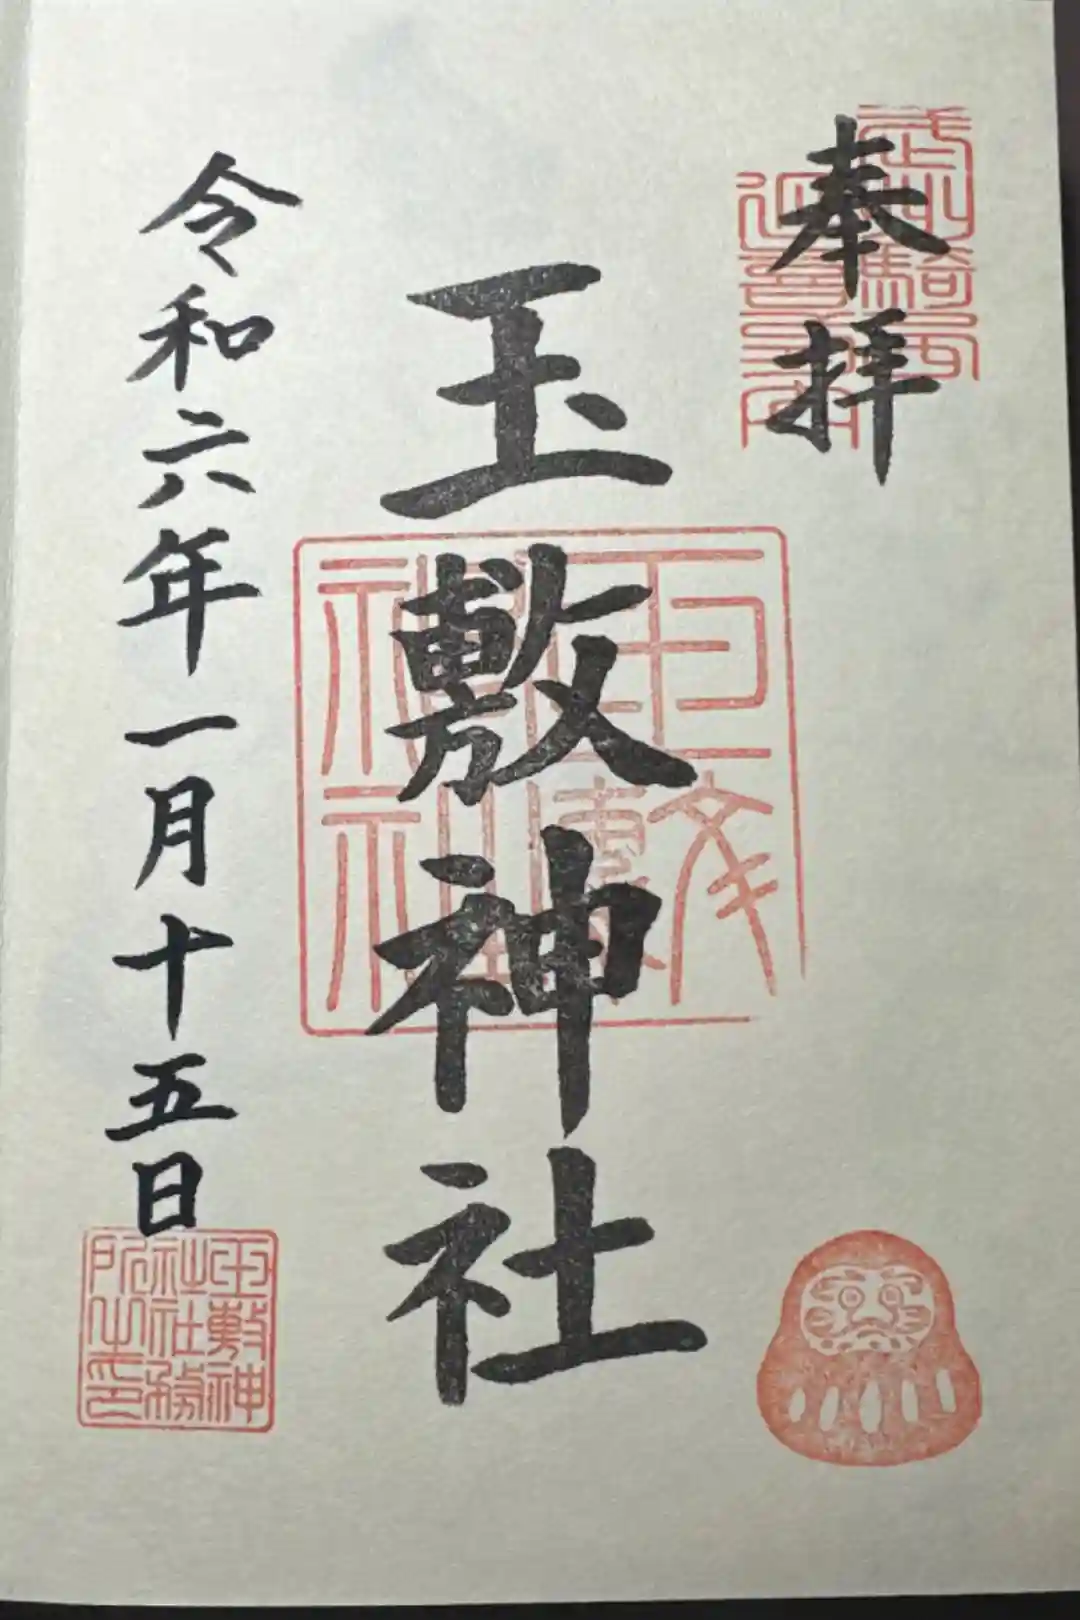 奉拝
武州騎西
玉敷神社
玉敷神社
令和六年一月十五日
玉敷神
社社務
所之印